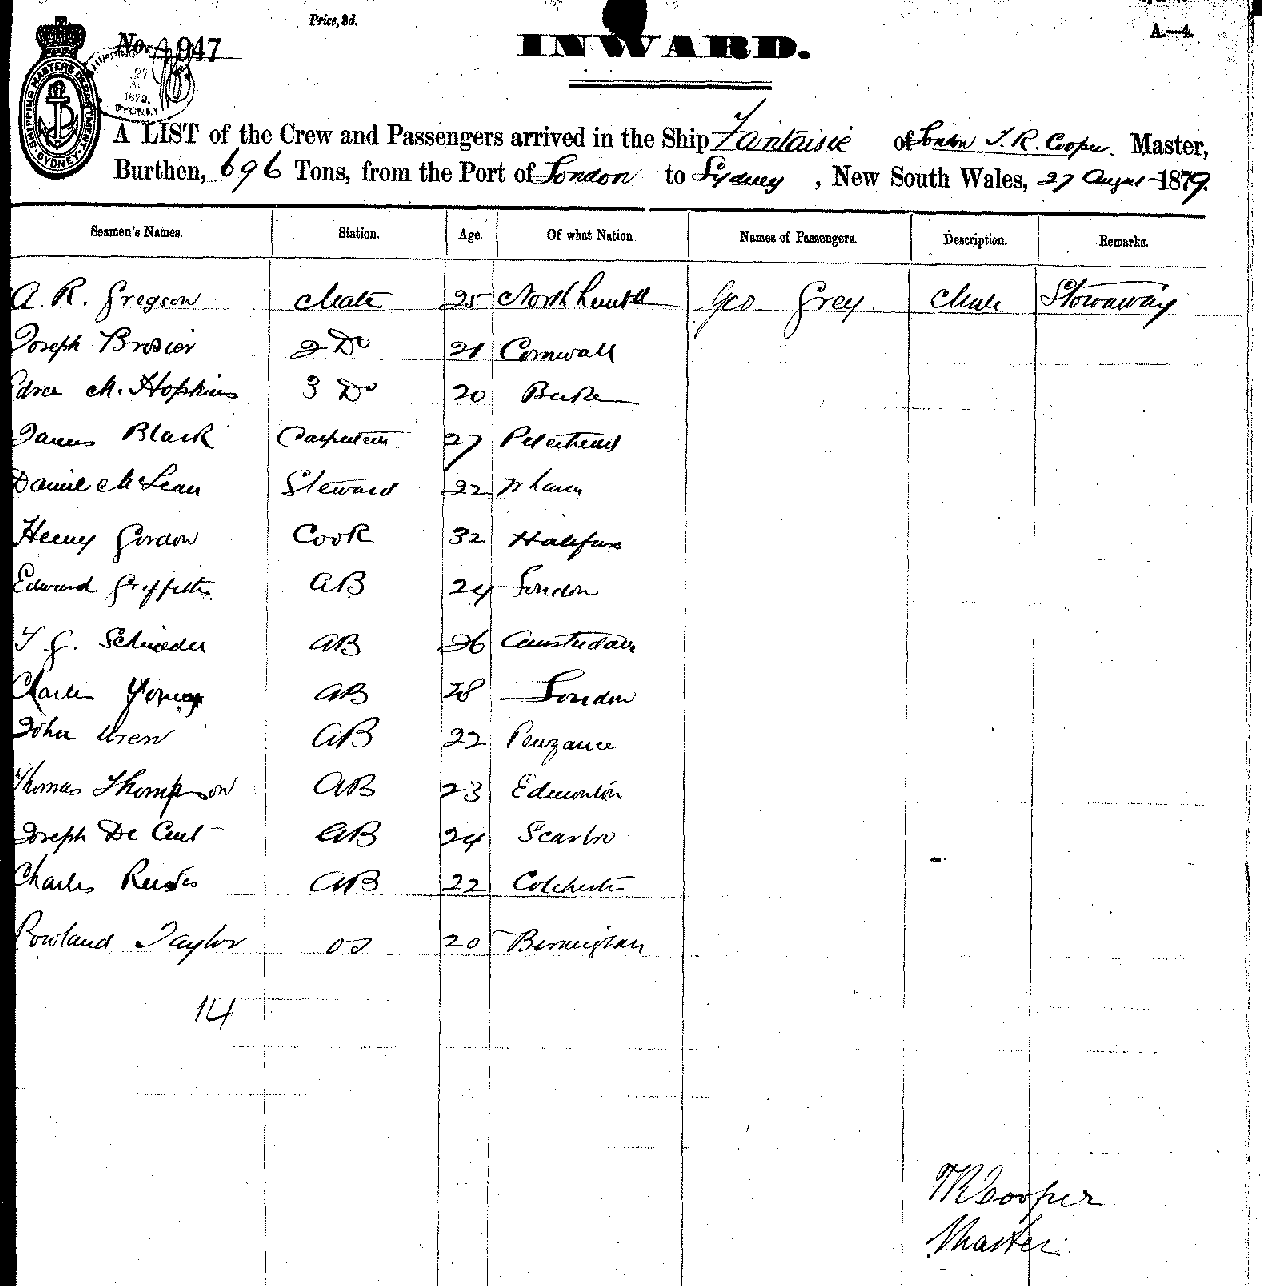 Price, 3d.
A.—4.
No. 947
INWARD.
SHIPPING MASTERS DEPARTMENT SYDNEY
27
1879
SYDNEY
A LIST of the Crew and Passengers arrived in the Ship Fantaisie of London J. R. Cooper. Master,
Burthen, 696 Tons, from the Port of London to Sydney, New South Wales, 27 August 1879.
Seamen's Names. Station. Age. Of what Nation. Names of Passengers. Description. Remarks.
A. R. Gregson Mate 25 Geo Grey Stowaway
Joseph Brosier 2 Do 21 Cornwall
M. Hopkins 3 Do 20
James Black Carpenter 27 Peterhead
Daniel McLean Steward 22
Henry Gordon Cook 32 Halifax
Edward Griffiths AB 24 London
Schroeder AB 26 Amsterdam
Charles Young AB 28 London
John Uren AB 22 Penzance
Thomas Thompson AB 23 Edmonton
Joseph De AB 24 Scarbro
Charles AB 22 Colchester
Rowland Taylor OS 20 Birmingham
14
Cooper
Master